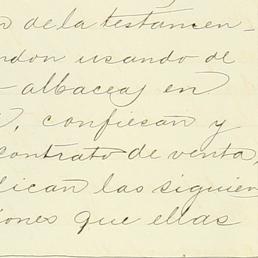 de la testamen-
usando de
albaceas en
, confiesan y
contrato de venta,
lican las siguien
iones que ellas